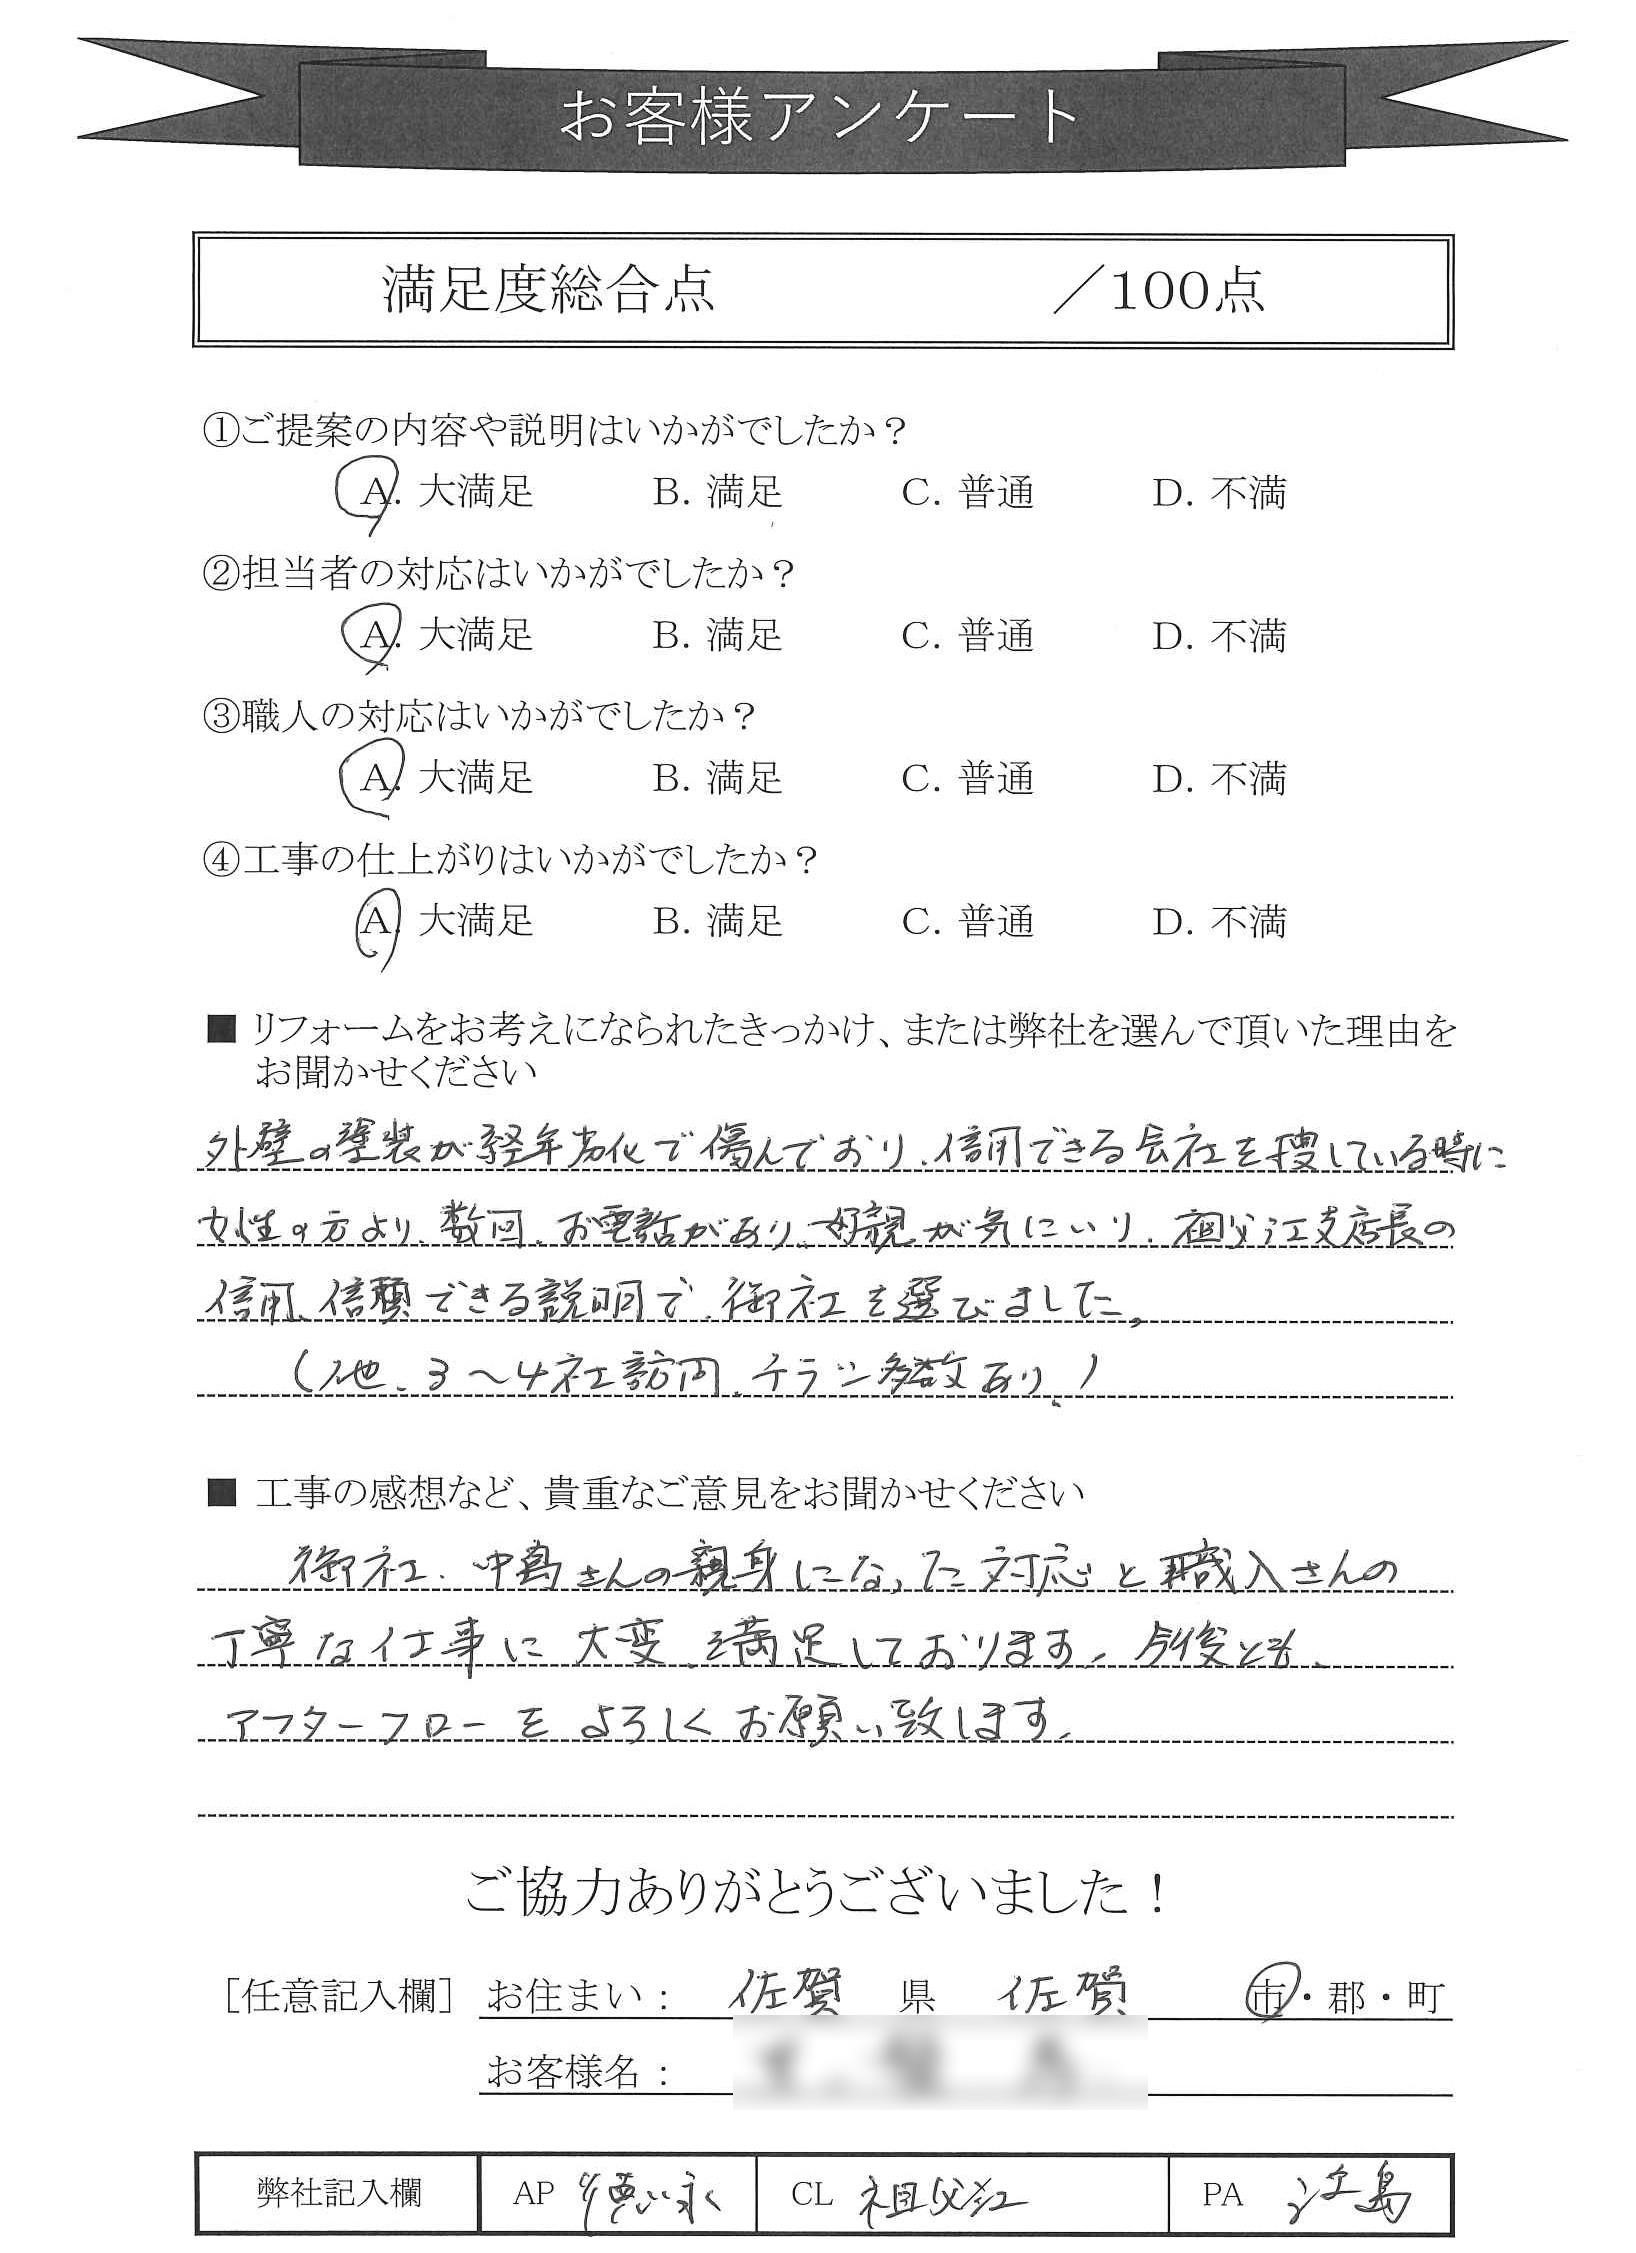 お客様アンケート
満足度総合点 ／100点
①ご提案の内容や説明はいかがでしたか？
A. 大満足 B. 満足 C. 普通 D. 不満
②担当者の対応はいかがでしたか？
A. 大満足 B. 満足 C. 普通 D. 不満
③職人の対応はいかがでしたか？
A. 大満足 B. 満足 C. 普通 D. 不満
④工事の仕上がりはいかがでしたか？
A. 大満足 B. 満足 C. 普通 D. 不満
■ リフォームをお考えになられたきっかけ、または弊社を選んで頂いた理由を
お聞かせください
外壁の塗装が経年劣化で傷んでおり、信用できる会社を捜している時に
女性の方より、数回、お電話があり、好親が気にいり、祖父江支店長の
信用、信頼できる説明で、御社を選びました。
（他、3～4社訪問、チラシ多数あり、）
■ 工事の感想など、貴重なご意見をお聞かせください
御社、中島さんの親身になった対応と職人さんの
丁寧な仕事に大変、満足しております。今後とも、
アフターフローをよろしくお願い致します。
ご協力ありがとうございました！
［任意記入欄］ お住まい： 佐賀 県 佐賀 市・郡・町
お客様名：
弊社記入欄 AP 徳永 CL 祖父江 PA